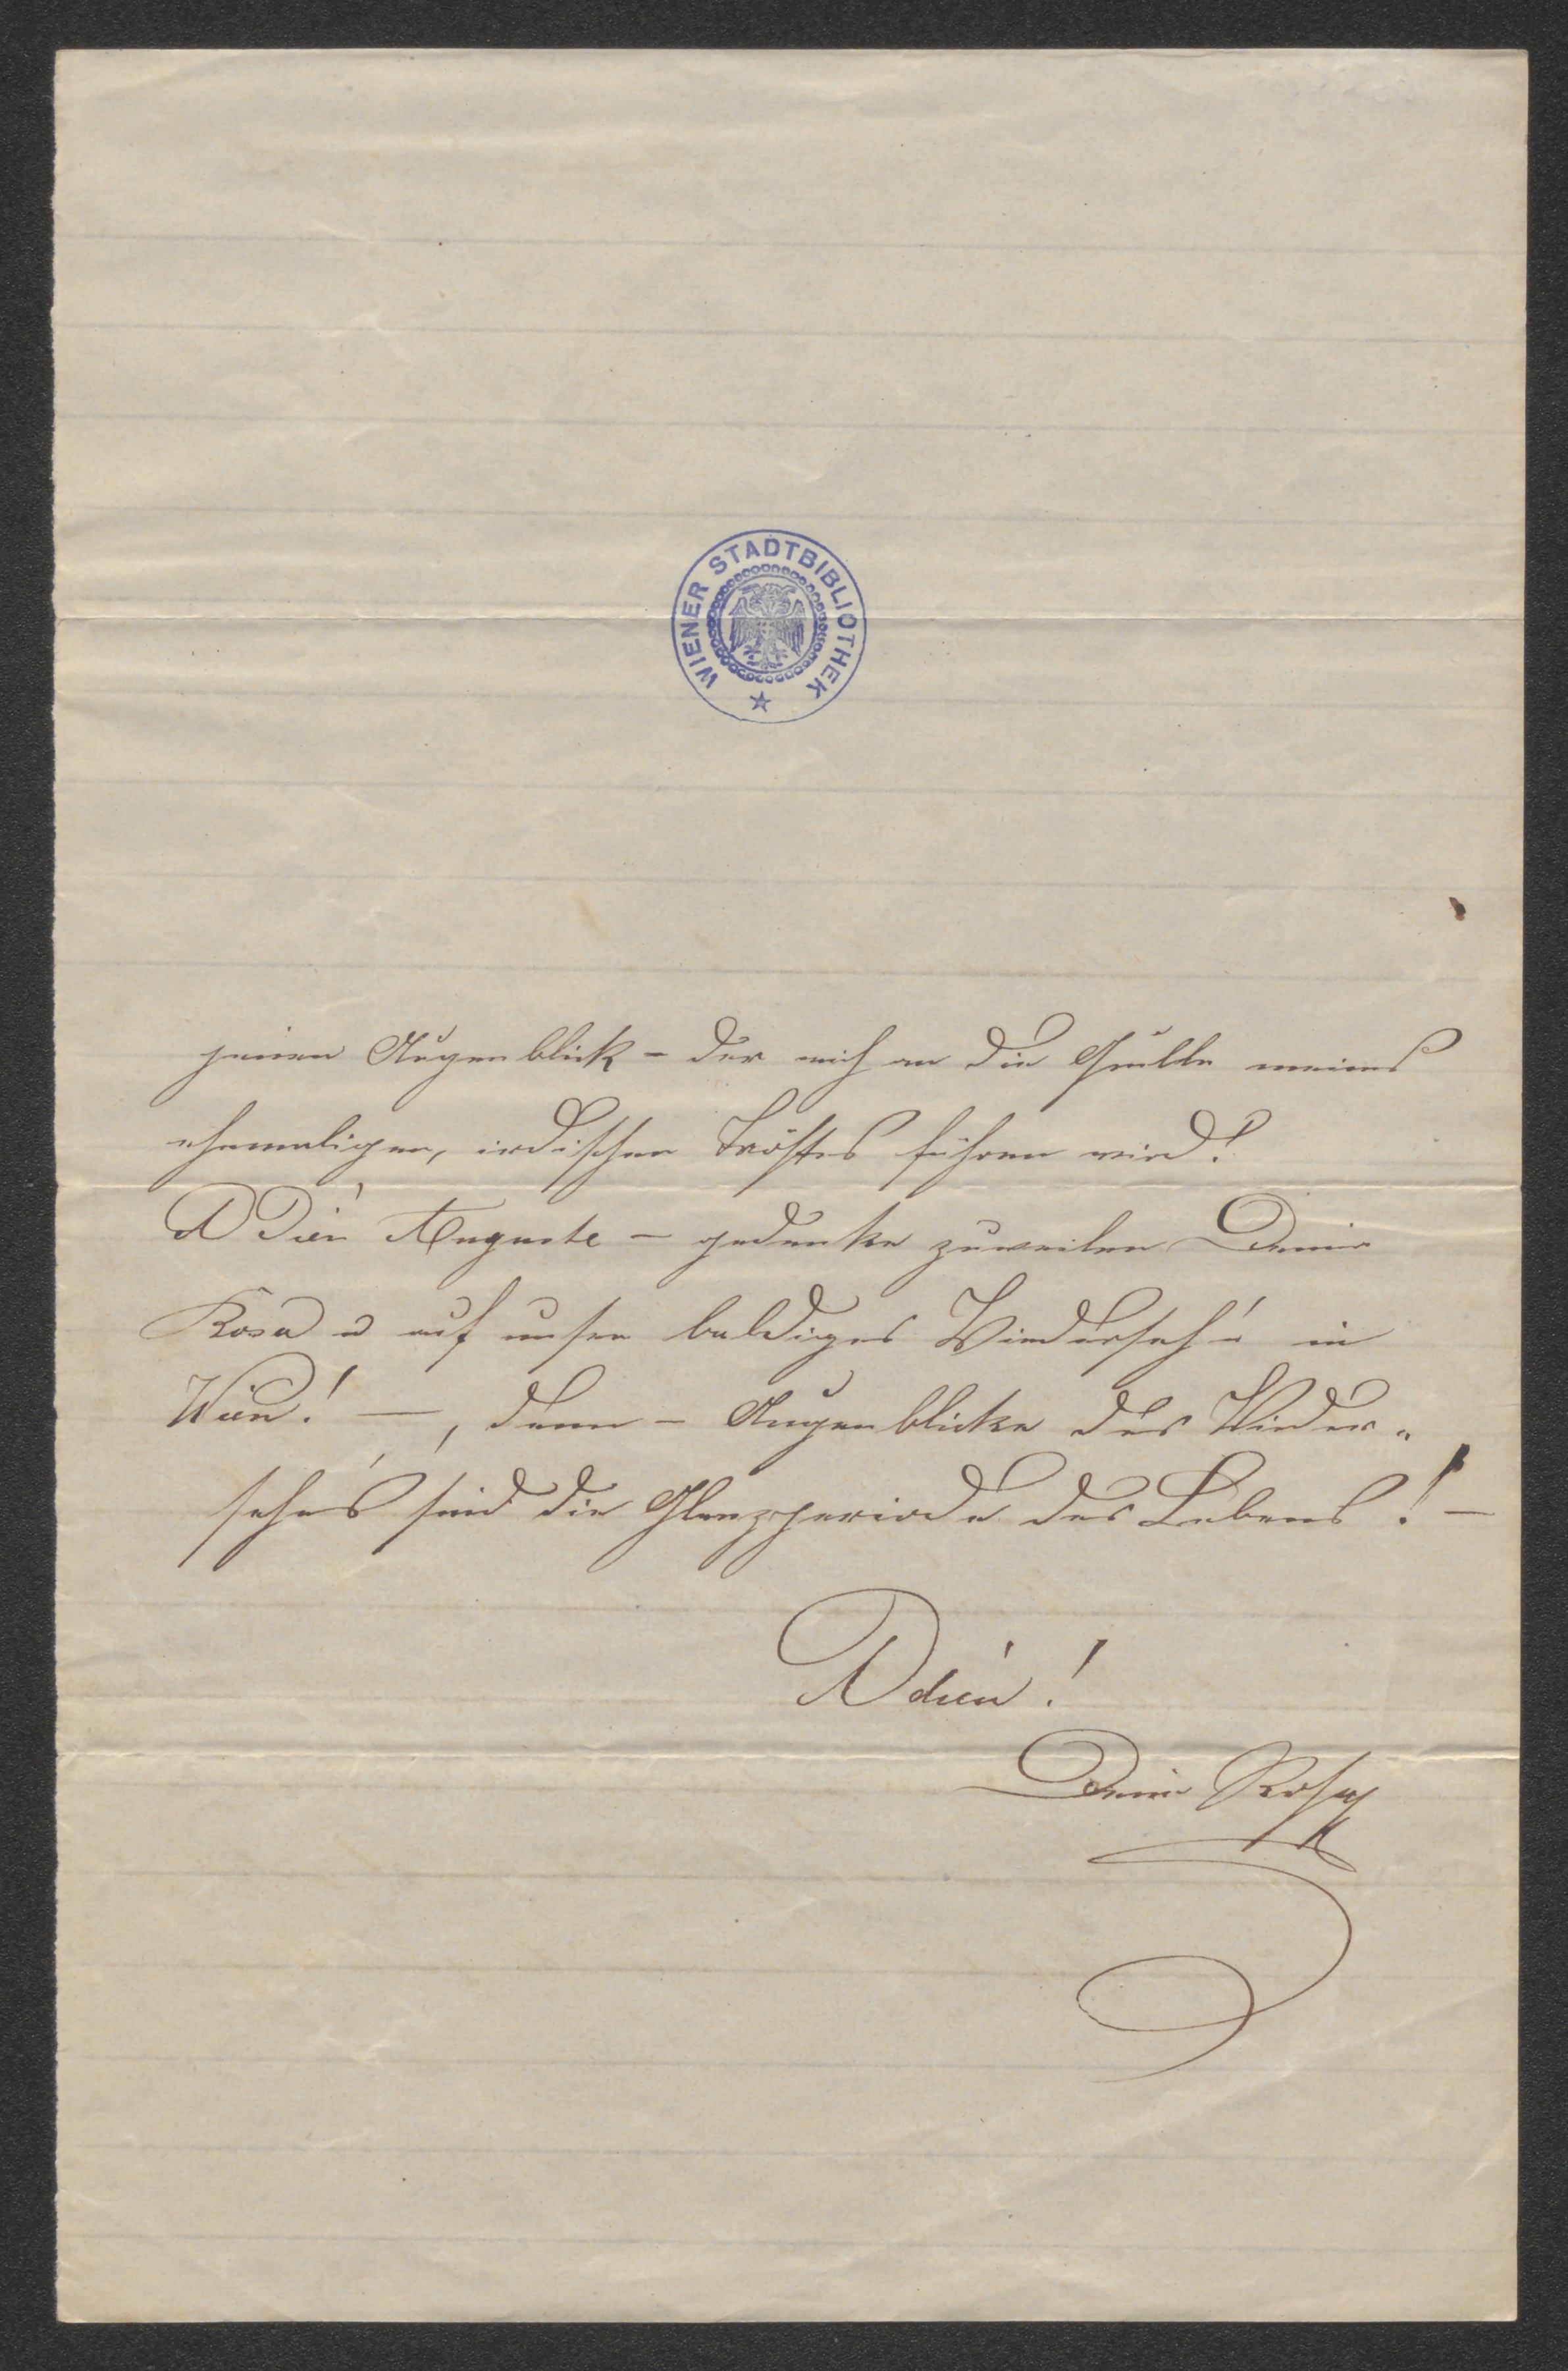 WIENER STADTBIBLIOTHEK
jenen Augenblick – der mich an die Quelle meines
ehemaligen, irdischen Trostes führen wird!
Adieu Auguste – gedenke zuweilen Deiner
Rosa u auf unser baldiges Wiederseh'n in
Wien! –, denn – Augenblicke des Wieder-
seh'ns sind die Glanzperiode des Lebens! –
Adieu!
Deine Rosa